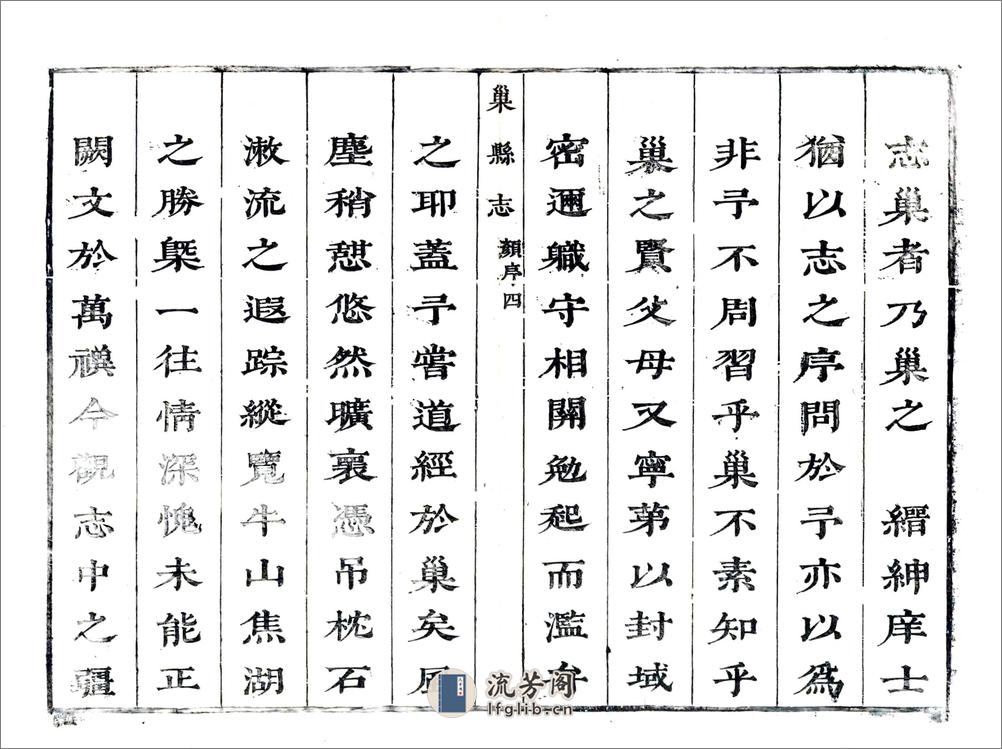 志巢者乃巢之　縉紳庠士
猶以志之序問於予亦以爲
非予不周習乎巢不素知乎
巢之賢父母又寧第以封域
密邇職守相關勉起而濫弁
巢縣志 顏序 四
之耶蓋予嘗道經於巢矣風
塵稍憇悠然曠褱憑吊枕石
漱流之遐踪縱覽牛山焦湖
之勝槩一往情深愧未能正
闕文於萬禩今觀志中之疆
流芳阁
lfglib.cn